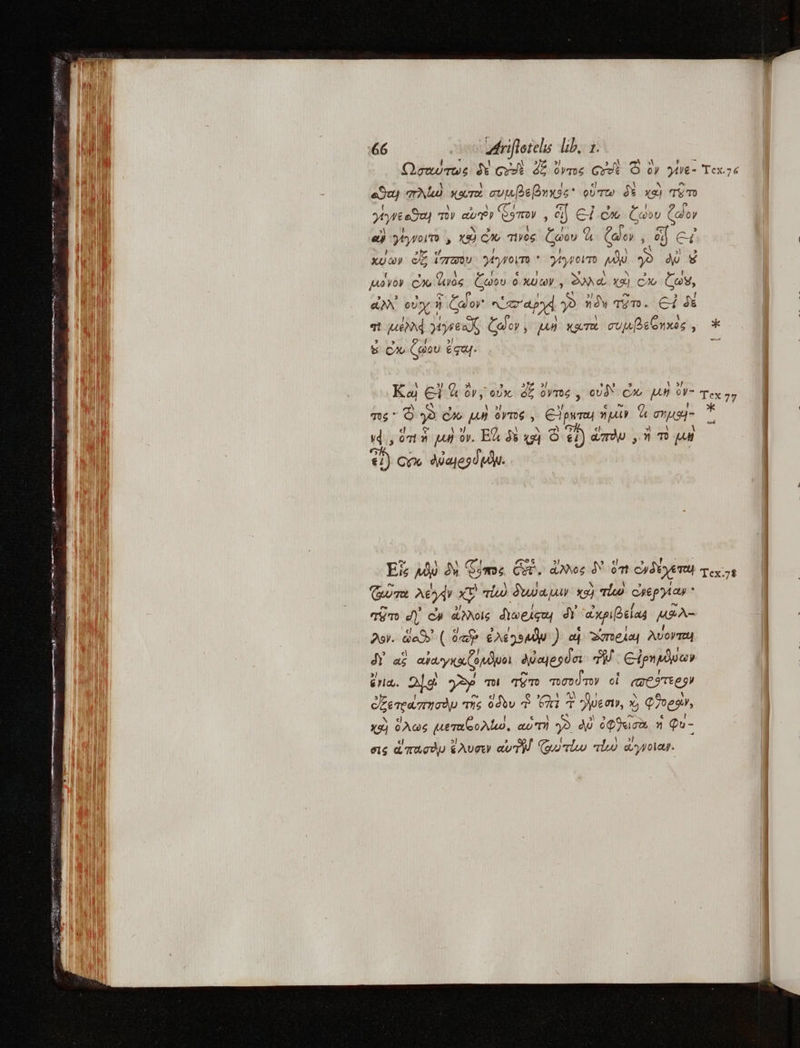 66 Aristotelis lib. 1.
Ὡσαύτως δὲ οὐδὲ ἐξ ὄντος οὐδὲ τὸ ὂν γίνε- Tex.76
σθαι πλὴν κατὰ συμβεβηκός· οὕτω δὲ καὶ τοῦτο
γίγνεσθαι τὸν αὐτὸν τρόπον, οἷον εἰ ἐκ ζώου ζῶον
ἂν γίγνοιτο, καὶ ἐκ τινὸς ζώου τι ζῶον, οἷον εἰ
κύων ἐξ ἵππου γίγνοιτο· γίγνοιτο μὲν γὰρ ἂν οὐ
μόνον ἐκ τινὸς ζώου ὁ κύων, ἀλλὰ καὶ ἐκ ζώου,
ἀλλ' οὐχ ᾗ ζῶον· ὑπάρχει γὰρ ἤδη τοῦτο. εἰ δέ
τι μέλλει γίγνεσθαι ζῶον, μὴ κατὰ συμβεβηκός, *
οὐκ ἐκ ζώου ἔσται.
Καὶ εἴ τι ὄν, οὐκ ἐξ ὄντος, οὐδ' ἐκ μὴ ὄν- Tex 77
τος· τὸ γὰρ ἐκ μὴ ὄντος, εἴρηται ἡμῖν τι σημαί- *
νει, ὅτι ᾗ μὴ ὄν. Ἔτι δὲ καὶ τὸ εἶναι ἅπαν, ἢ τὸ μὴ
εἶναι οὐκ ἀναιροῦμεν.
Εἷς μὲν δὴ τρόπος οὗτος. ἄλλος δ' ὅτι ἐνδέχεται Tex.78
ταῦτα λέγειν κατὰ τὴν δύναμιν καὶ τὴν ἐνέργειαν·
τοῦτο δ' ἐν ἄλλοις διώρισται δι' ἀκριβείας μᾶλ-
λον. ὥσθ' (ὅπερ ἐλέγομεν) αἱ ἀπορίαι λύονται
δι' ἃς ἀναγκαζόμενοι ἀναιροῦσι τῶν εἰρημένων
ἔνια. Διὰ γάρ τοι τοῦτο τοσοῦτον οἱ πρότερον
ἐξετράπησαν τῆς ὁδοῦ τῆς ἐπὶ τὴν γένεσιν, καὶ φθοράν,
καὶ ὅλως μεταβολήν. αὐτὴ γὰρ ἂν ὀφθεῖσα ἡ φύ-
σις ἅπασαν ἔλυσεν αὐτῶν ταύτην τὴν ἄγνοιαν.